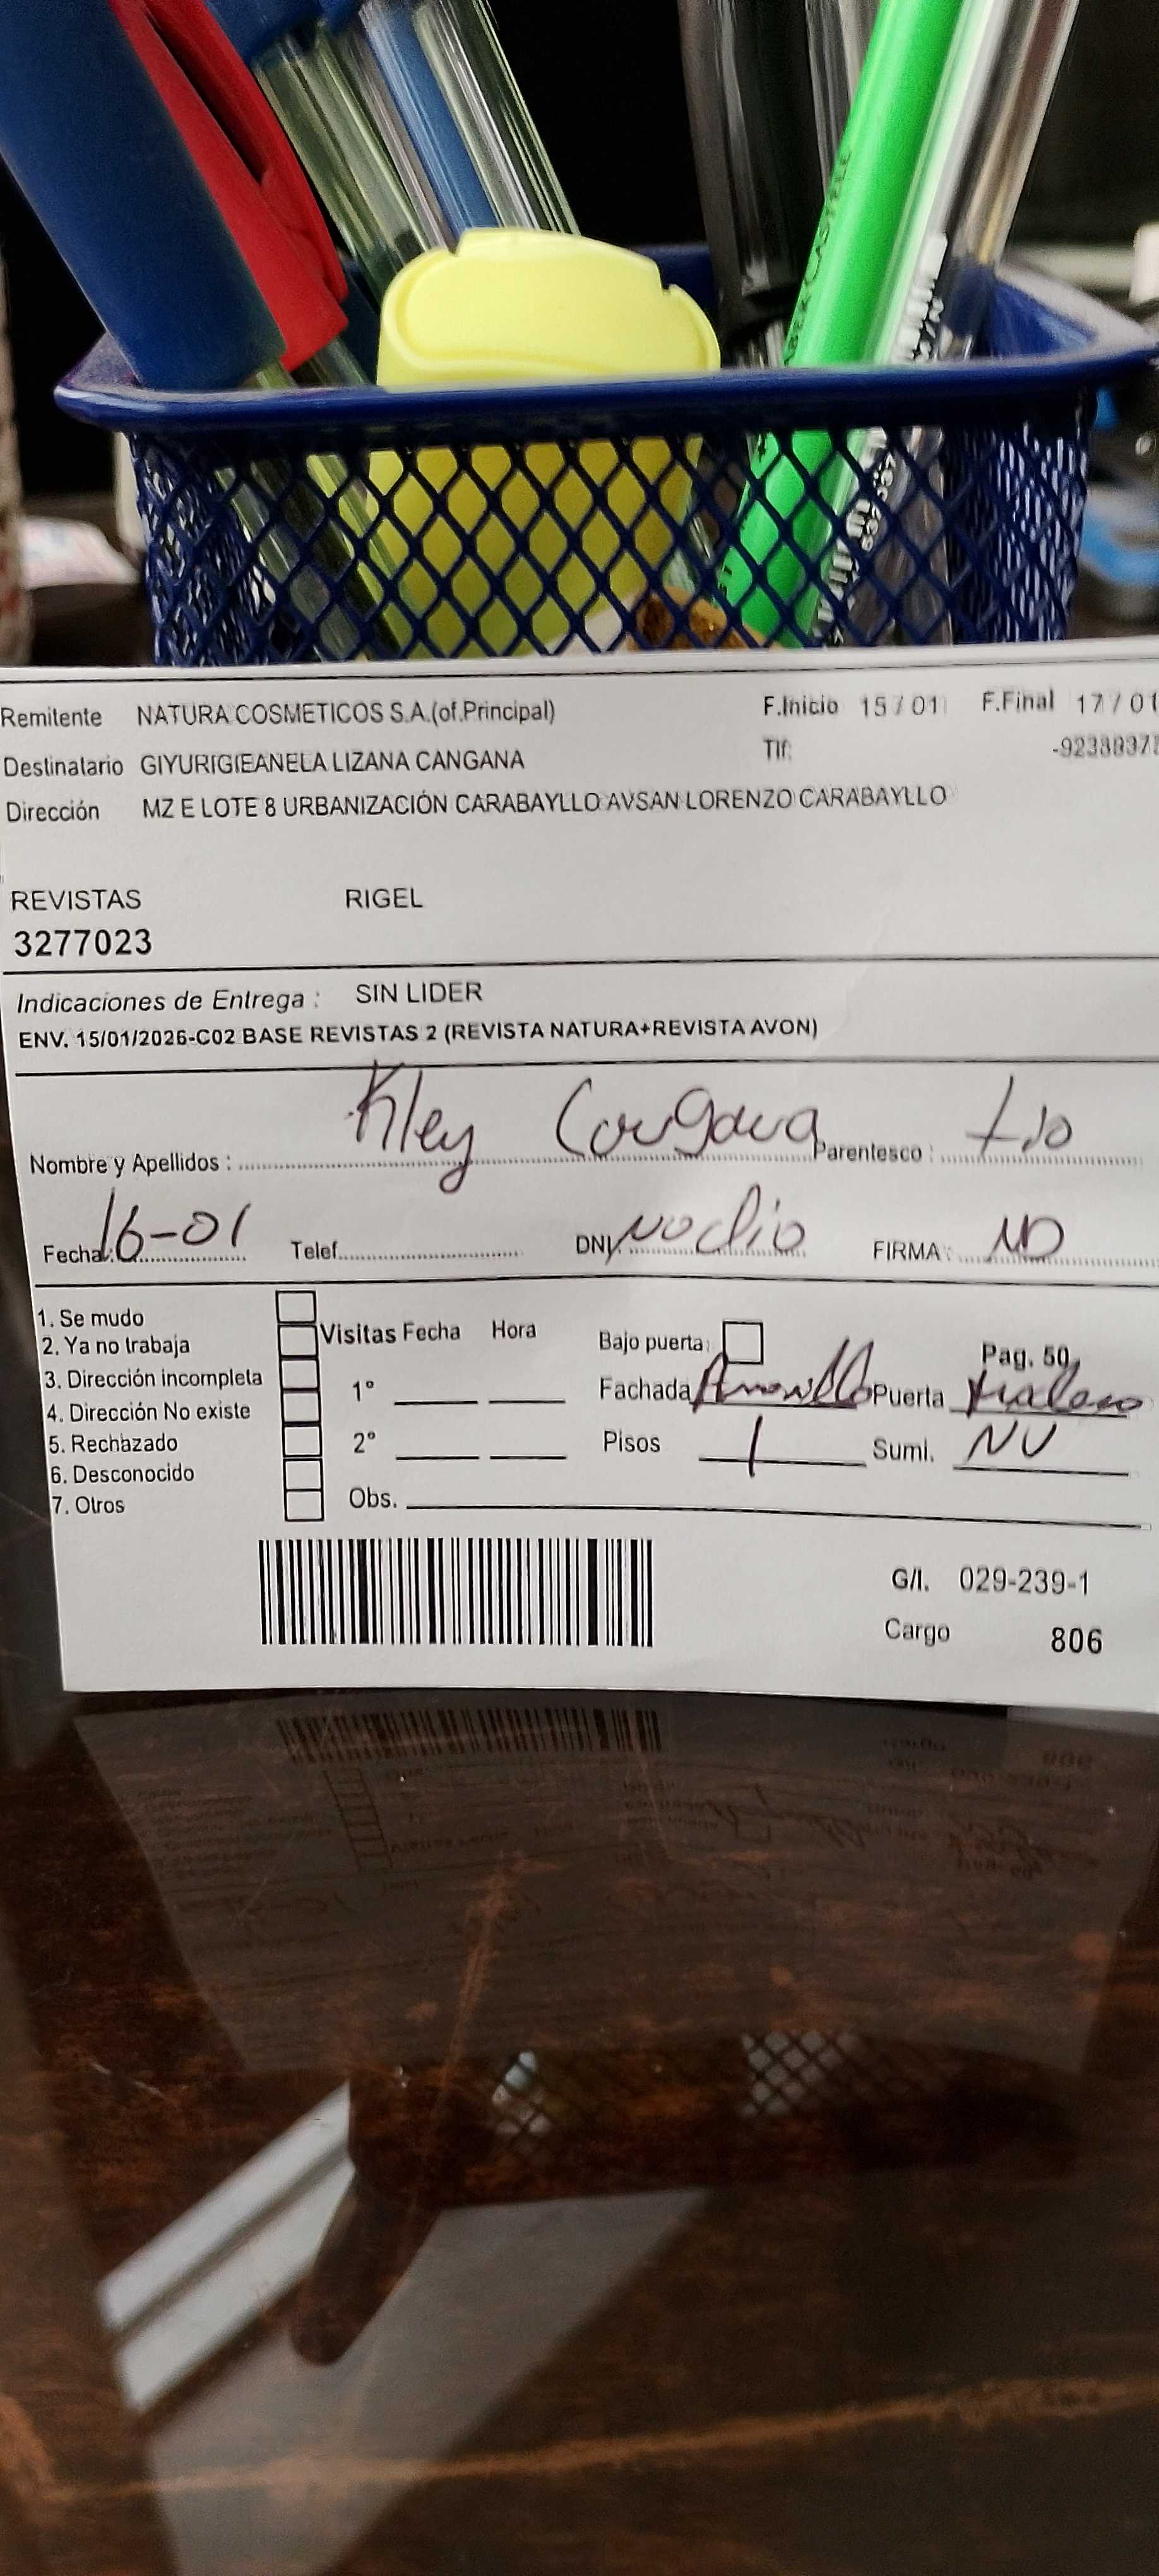 ABER CASTELL
Remitente NATURA COSMETICOS S.A.(of.Principal) F.Inicio 15/01 F.Final 17/01
Destinatario GIYURIGIEANELA LIZANA CANGANA Tlf:
Dirección MZ E LOTE 8 URBANIZACIÓN CARABAYLLO AVSAN LORENZO CARABAYLLO
REVISTAS RIGEL
3277023
Indicaciones de Entrega : SIN LIDER
ENV. 15/01/2026-C02 BASE REVISTAS 2 (REVISTA NATURA+REVISTA AVON)
Nombre y Apellidos : Kley Cangana Parentesco : tio
Fecha: 16-01 Telef. DNI. no dio FIRMA : ND
1. Se mudo
2. Ya no trabaja
3. Dirección incompleta
4. Dirección No existe
5. Rechazado
6. Desconocido
7. Otros
Visitas Fecha Hora
1°
2°
Obs.
Bajo puerta: Pag. 50
Fachada Amarillo Puerta
Pisos 1 Sumi. NV
G/I. 029-239-1
Cargo 806